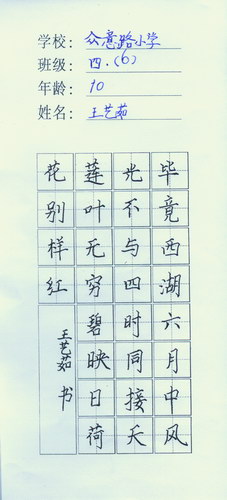 学校: 众意路小学
班级: 四.(6)
年龄: 10
姓名: 王艺茹
毕竟西湖六月中风
光不与四时同接天
莲叶无穷碧映日荷
花别样红
王艺茹 书